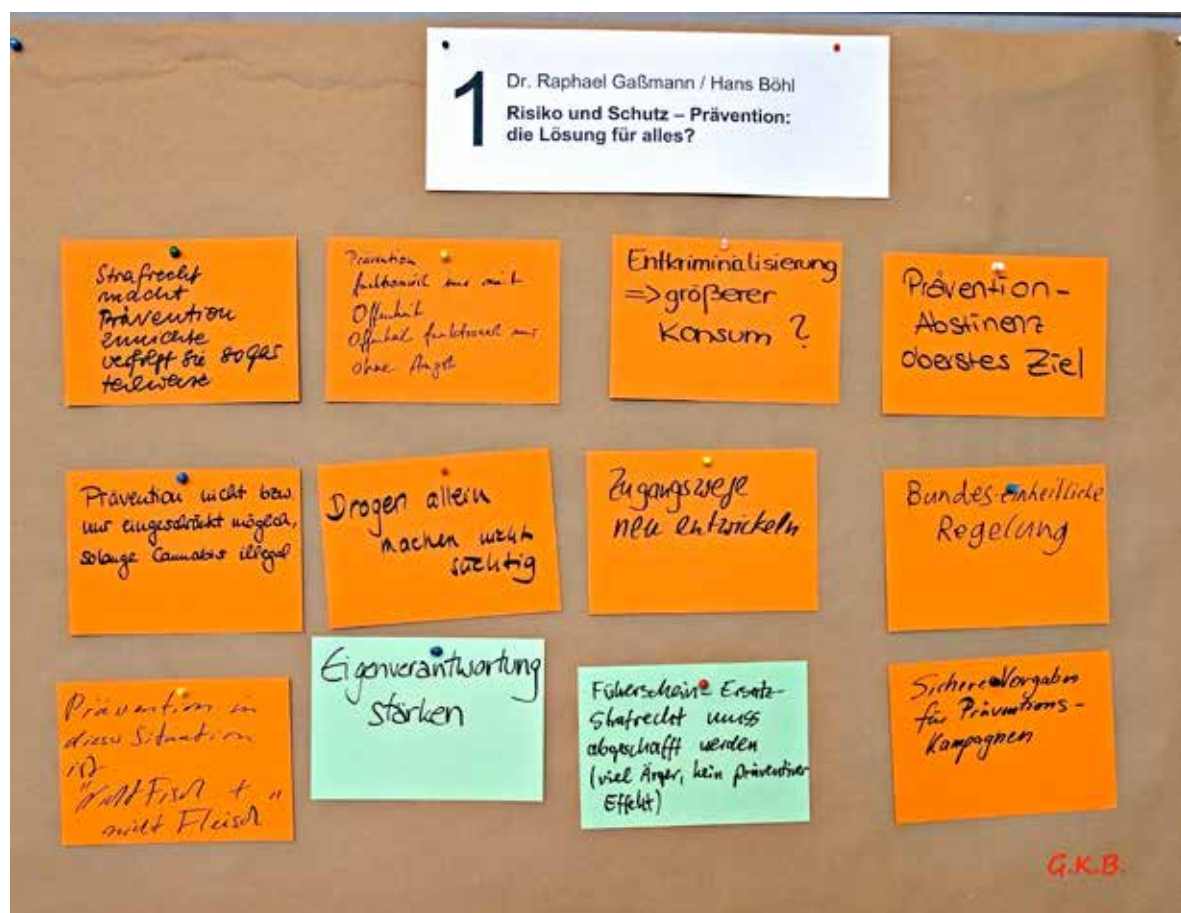 1
Dr. Raphael Gaßmann / Hans Böhl
Risiko und Schutz – Prävention:
die Lösung für alles?
Strafrecht
macht
Prävention
zunichte
verfolgt sie sogar
teilweise
Prävention
funktioniert nur mit
Offenheit
Offenheit funktioniert nur
ohne Angst
Entkriminalisierung
=> größerer
Konsum ?
Prävention -
Abstinenz
oberstes Ziel
Prävention nicht bzw.
nur eingeschränkt möglich,
solange Cannabis illegal
Drogen allein
machen nicht
süchtig
Zugangswege
neu entwickeln
Bundes-einheitliche
Regelung
Prävention in
dieser Situation
ist
"nicht Fisch +
nicht Fleisch"
Eigenverantwortung
stärken
Führerschein-Ersatz-
Strafrecht muss
abgeschafft werden
(viel Ärger, kein präventiver
Effekt)
Sichere Vorgaben
für Präventions-
Kampagnen
G.K.B.